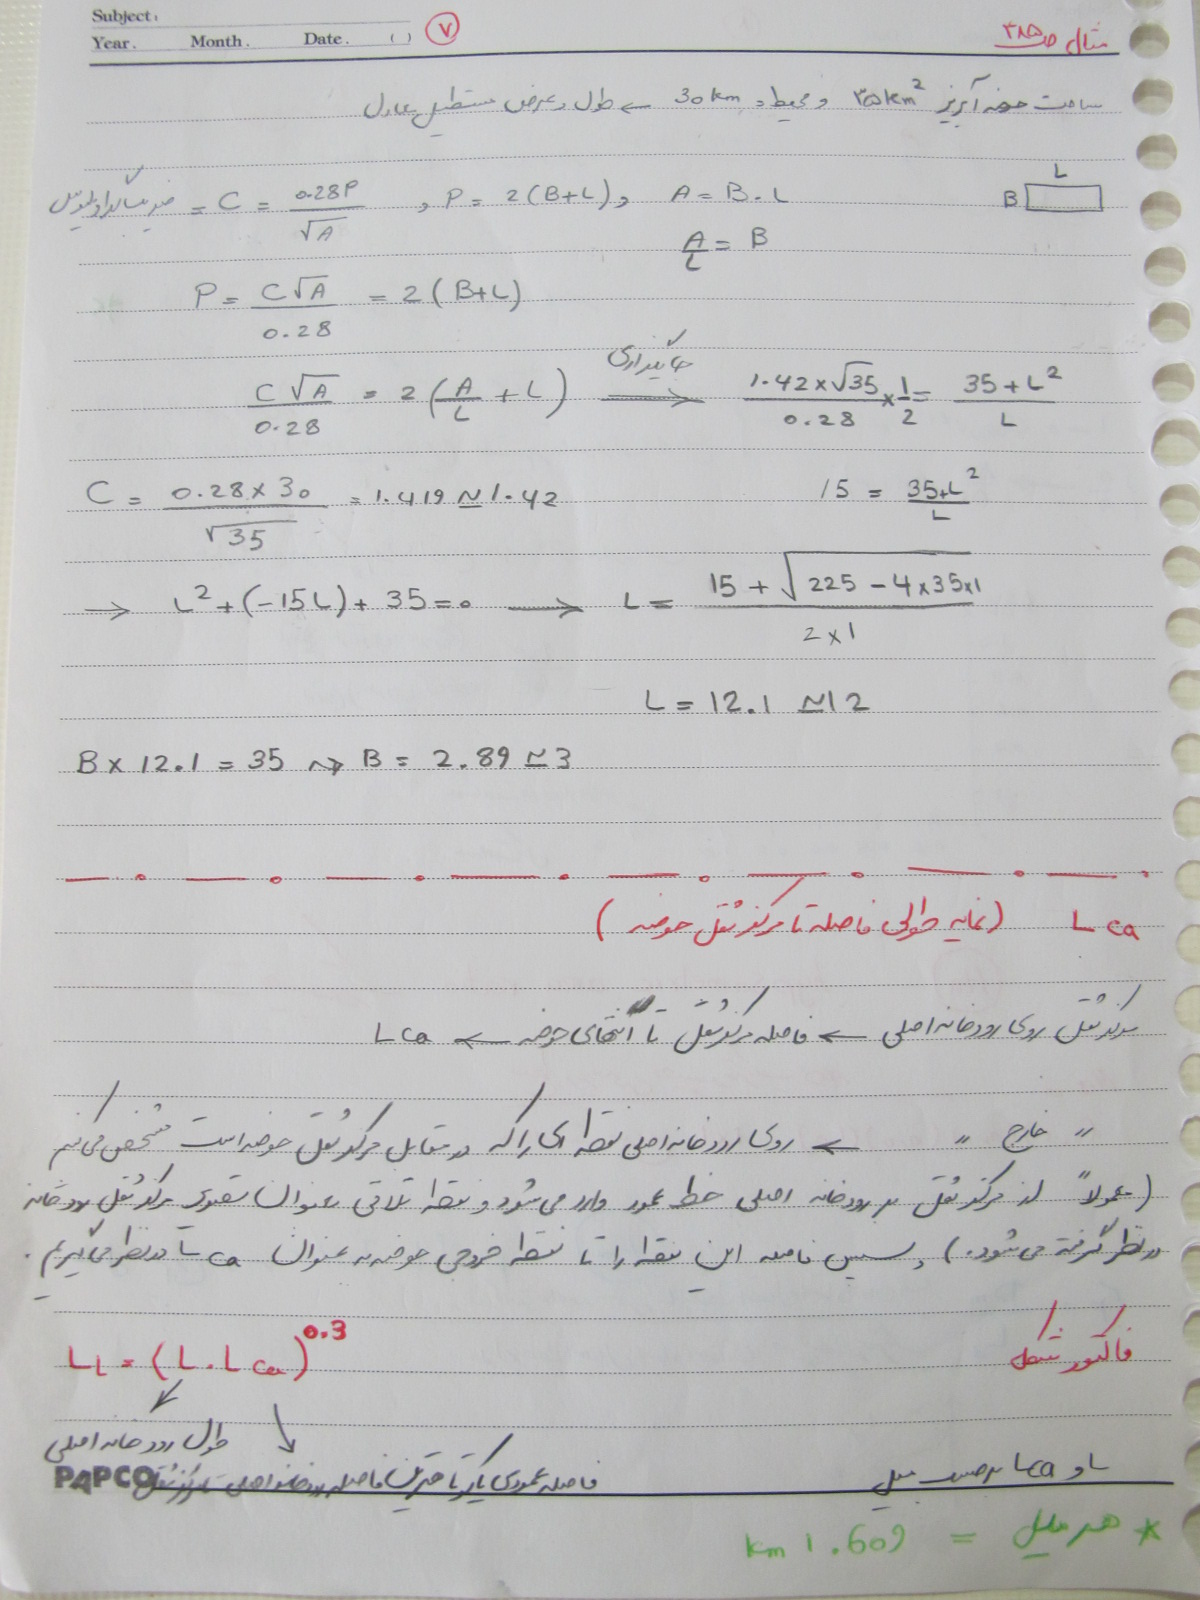 Subject:
Year. Month. Date. ( )
۷
مثال ص ۳۸۵
مساحت حوضه آبریز ۳۵ km² و محیط 30 km ← طول و عرض مستطیل معادل
L
B
ضریب گراویلیوس = C = 0.28P / √A , P = 2(B+L), A = B.L
A/L = B
P = C√A / 0.28 = 2(B+L)
C√A / 0.28 = 2(A/L + L) جایگذاری → 1.42×√35 / 0.28 × 1/2 = 35+L² / L
C = 0.28×30 / √35 = 1.419 ≃ 1.42
15 = 35+L² / L
→ L² + (-15L) + 35 = 0 → L = 15 + √225 - 4×35×1 / 2×1
L = 12.1 ≃ 12
B × 12.1 = 35 ⇝ B = 2.89 ≃ 3
Lca (نمایه طولی فاصله تا مرکز ثقل حوضه)
مرکز ثقل روی رودخانه اصلی ← فاصله مرکز ثقل تا انتهای حوضه ← Lca
〃 خارج 〃 ← روی رودخانه اصلی نقطه ای را که در مقابل مرکز ثقل حوضه است مشخص می کنیم
(معمولاً از مرکز ثقل بر رودخانه اصلی خط عمود وارد می شود و نقطه تلاقی بعنوان مرکز ثقل رودخانه
در نظر گرفته می شود.) سپس فاصله این نقطه را تا نقطه خروجی حوضه به عنوان Lca در نظر می گیریم.
فاکتور شکل
LL = (L.Lca)^0.3
طول رودخانه اصلی
فاصله عمودی یا نزدیکترین فاصله رودخانه اصلی تا مرکز ثقل
L و Lca برحسب میل
PAPCO
* هر میل = 1.609 km